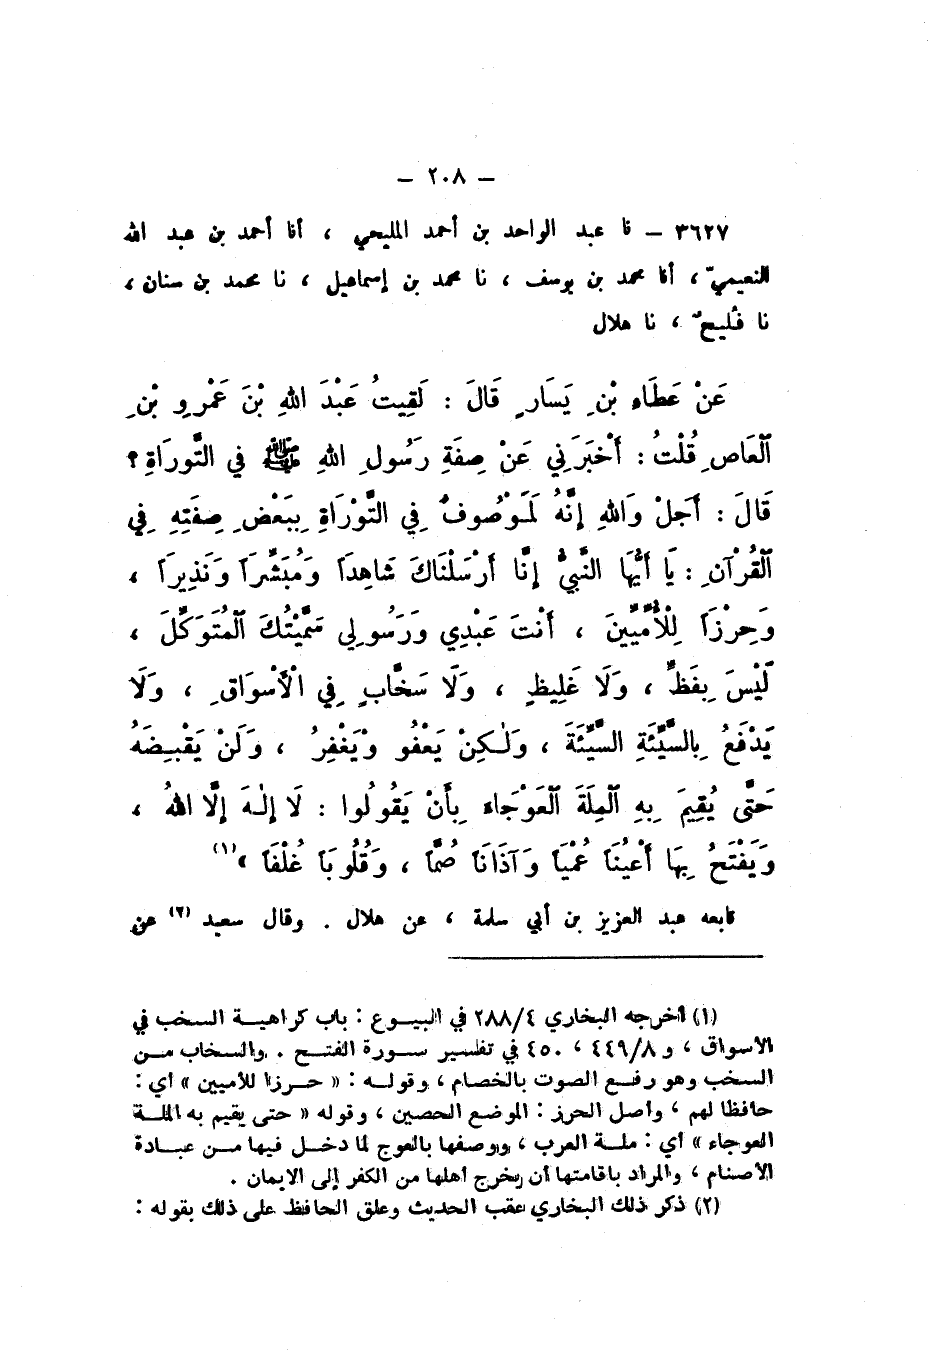 – ٢٠٨ –
٣٦٢٧ – نا عبد الواحد بن أحمد المليحي ، أنا أحمد بن عبد الله
النعيميّ ، أنا محمد بن يوسف ، نا محمد بن إسماعيل ، نا محمد بن سنان ،
نا فُليحٌ ، نا هلال
عَنْ عَطَاءِ بْنِ يَسَارٍ قَالَ : لَقِيتُ عَبْدَ اللهِ بْنَ عَمْرِو بْنِ
الْعَاصِ قُلْتُ : أَخْبِرَنِي عَنْ صِفَةِ رَسُولِ اللهِ ﷺ فِي التَّورَاةِ ؟
قَالَ : أَجَلْ وَاللهِ إِنَّهُ لَمَوْصُوفٌ فِي التَّوْرَاةِ بِبَعْضِ صِفَتِهِ فِي
الْقُرْآنِ : يَا أَيُّهَا النَّبِيُّ إِنَّا أَرْسَلْنَاكَ شَاهِدَاً وَمُبَشِّرَاً وَنَذِيرَاً ،
وَحِرْزَاً لِلْأُمِّيِّينَ ، أَنْتَ عَبْدِي وَرَسُولِي سَمَّيْتُكَ الْمُتَوَكِّلَ ،
لَيْسَ بِفَظٍّ ، وَلَا غَلِيظٍ ، وَلَا سَخَّابٍ فِي الْأَسْوَاقِ ، وَلَا
يَدْفَعُ بِالسَّيِّئَةِ السَّيِّئَةَ ، وَلٰكِنْ يَعْفُو وْيَغْفِرُ ، وَلَنْ يَقْبِضَهُ
حَتَّى يُقِيمَ بِهِ الْمِلَةَ الْعَوْجَاءَ بِأَنْ يَقُولُوا : لَا إِلٰهَ إِلَّا اللهُ ،
وَيَفْتَحُ بِهَا أَعْيُنَاً عُمْيَاً وَآذَانَاً صُمَّاً ، وَقُلُوبَاً غُلْفَاً » (١)
تابعه عبد العزيز بن أبي سلمة ، عن هلال . وقال سعيد (٢) عن
(١) أخرجه البخاري ٢٨٨/٤ في البيوع : باب كراهية السخب في
الأسواق ، و ٤٤٩/٨ ، ٤٥٠ في تفسير سورة الفتح . والسخاب من
السخب وهو رفع الصوت بالخصام ، وقوله : « حرزاً للأميين » أي :
حافظاً لهم ، وأصل الحرز : الموضع الحصين ، وقوله « حتى يقيم به الملة
العوجاء » أي : ملة العرب ، ووصفها بالعوج لما دخل فيها من عبادة
الأصنام ، والمراد باقامتها أن يخرج أهلها من الكفر إلى الايمان .
(٢) ذكر ذلك البخاري عقب الحديث وعلق الحافظ على ذلك بقوله :